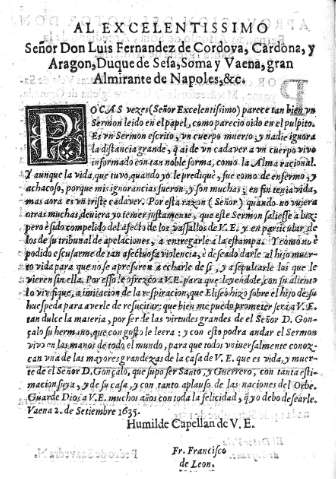 AL EXCELENTISSIMO
Señor Don Luis Fernandez de Cordova, Cardona, y
Aragon, Duque de Sesa, Soma y Vaena, gran
Almirante de Napoles, &c.
POCAS vezes (Señor Excelentissimo) parece tan bien vn
Sermon leido en el papel, como parecio oido en el pulpito.
Es vn Sermon escrito, vn cuerpo muerto, y nadie ignora
la distancia grande, q̃ ai de vn cadaver a vn cuerpo vivo
informado con tan noble forma, como la Alma racional.
Y aunque la vida, que tuvo, quando yo le prediquè, fue como de enfermo, y
achacoso, porque mis ignorancias fueron, y son muchas; en fin tenia vida,
mas aora es vn triste cadaver. Por esta razon (Señor) quando no vuiera
otras muchas, deviera yo temer justamente, que este Sermon saliesse à luz:
pero è sido compelido del afecto de los vassallos de V.E. y en particular de
los de su tribunal de apelaciones, a entregarle a la estampa. Y como no è
podido escusarme de tan afectuosa violencia, è deseado darle al hijo muer-
to vida para que no se apresuren a echarle de si, y a sepultarle los que le
vieren sin ella. Por esso le ofrezco a V.E. para que leyendole, con su aliento
lo vivifique, a imitacion de la respiracion, que Eliseo hizo sobre el hijo de su
huespeda para averle de resucitar: que bien me puedo prometer serà a V.E.
tan dulce la materia, por ser de las virtudes grandes de el Señor D. Gon-
çalo su hermano, que con gusto le leera: y con esto podra andar el Sermon
vivo en las manos de todo el mundo, para que todos vniversalmente conoz-
can vna de las mayores grandezas de la casa de V.E. que es vida, y muer-
te de el Señor D. Gonçalo, que supo ser Santo, y Guerrero, con tanta esti-
macion suya, y de su casa, y con tanto aplauso de las naciones del Orbe.
Guarde Dios a V.E. muchos años con toda la felicidad, q̃ yo debo desearle.
Vaena 2. de Setiembre 1635.
Humilde Capellan de V.E.
Fr. Francisco
de Leon.